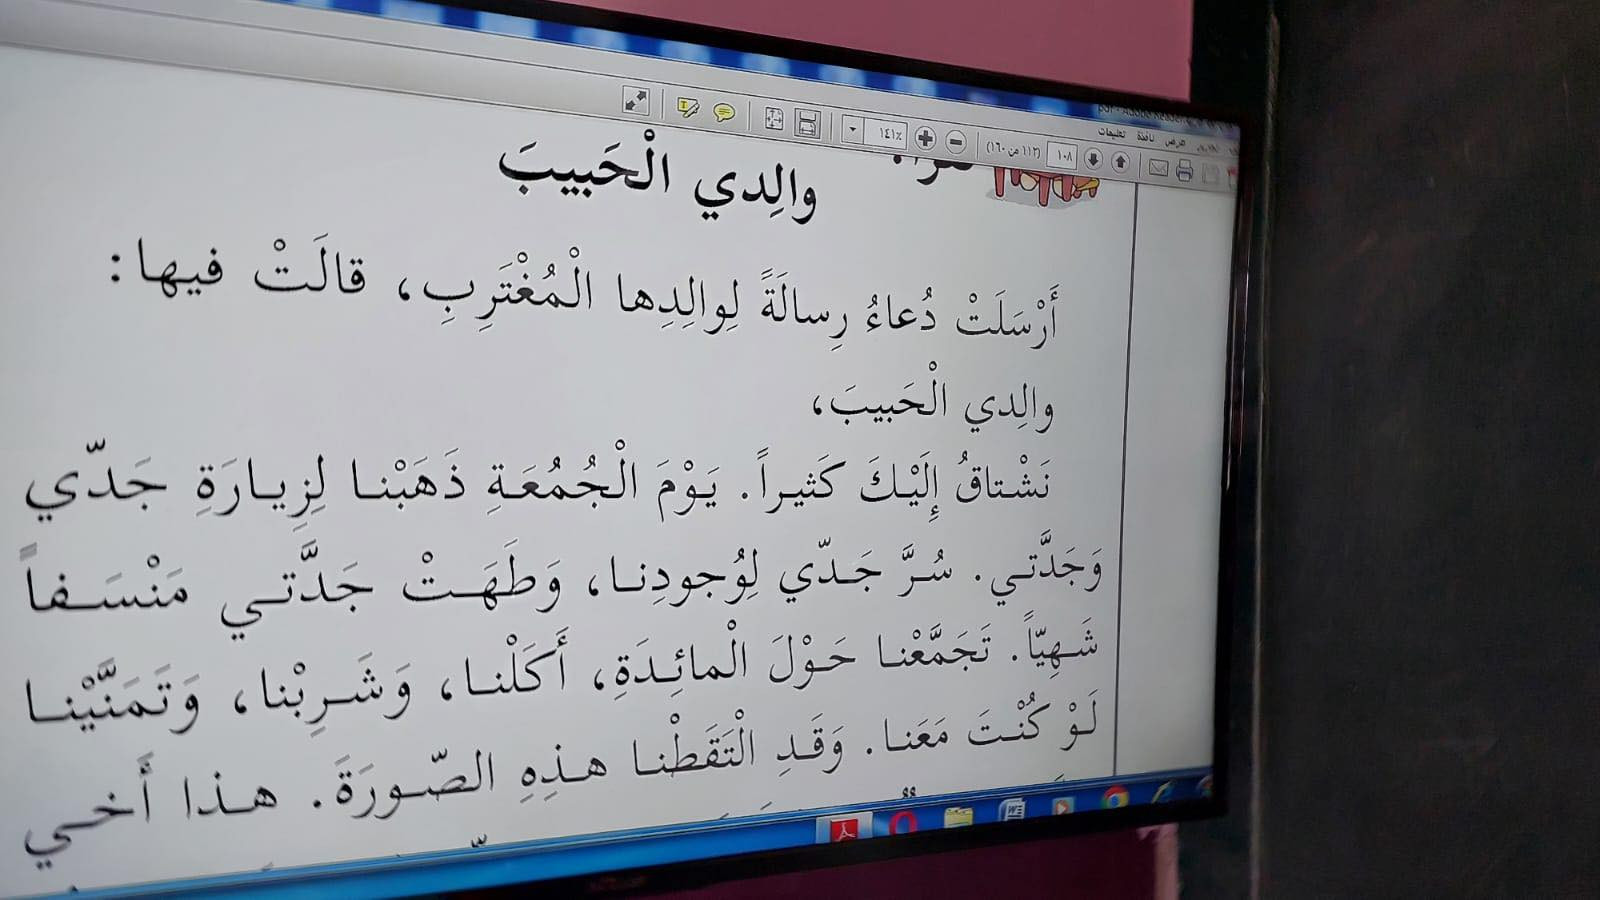 عرض نافذة تعليمات
١٠٨ (١١٢ من ١٦٠) ١٤١٪
والِدي الْحَبيبَ
أَرْسَلَتْ دُعاءُ رِسالَةً لِوالِدِها الْمُغْتَرِبِ، قالَتْ فيها:
والِدي الْحَبيبَ،
نَشْتاقُ إِلَيْكَ كَثيراً. يَوْمَ الْجُمُعَةِ ذَهَبْنا لِزِيارَةِ جَدّي
وَجَدَّتي. سُرَّ جَدّي لِوُجودِنا، وَطَهَتْ جَدَّتي مَنْسَفاً
شَهِيّاً. تَجَمَّعْنا حَوْلَ الْمائِدَةِ، أَكَلْنا، وَشَرِبْنا، وَتَمَنَّيْنا
لَوْ كُنْتَ مَعَنا. وَقَدِ الْتَقَطْنا هذِهِ الصّورَةَ. هذا أَخي